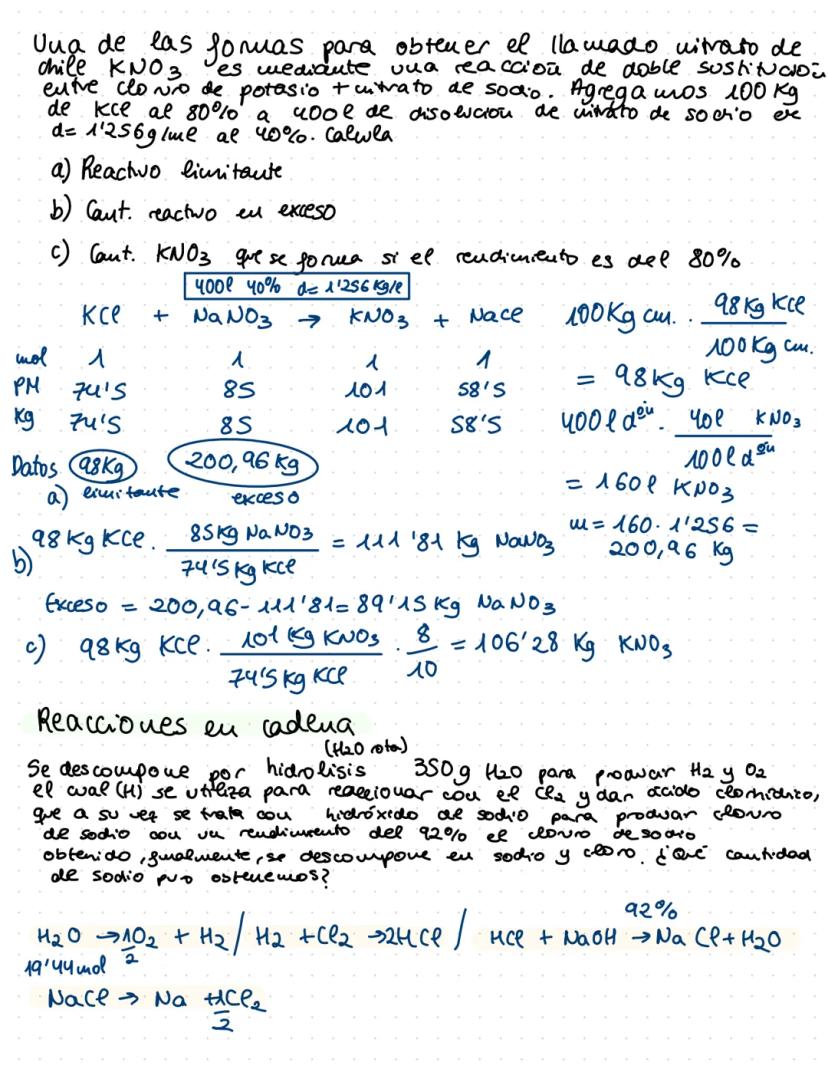 Una de las formas para obtener el llamado nitrato de
chile KNO3 es mediante una reacción de doble sustitución
entre cloruro de potasio + nitrato de sodio. Agregamos 100 Kg
de KCl al 80% a 400l de disolución de nitrato de sodio de
d= 1'256g/ml al 40%. Calcula
a) Reactivo limitante
b) Cant. reactivo en exceso
c) Cant. KNO3 que se forma si el rendimiento es del 80%
400l 40% d= 1'256 Kg/l
KCl + NaNO3 → KNO3 + NaCl
mol 1 1 1 1
PM 74'5 85 101 58'5
Kg 74'5 85 101 58'5
Datos 98Kg 200,96 Kg
a) limitante exceso
100Kg cm. · 98 Kg KCl / 100 Kg cm.
= 98 Kg KCl
400 l dón · 40l KNO3 / 100 l dón
= 160 l KNO3
m = 160 · 1'256 =
200,96 Kg
b) 98 Kg KCl · 85 Kg NaNO3 / 74'5 Kg KCl = 111'81 Kg NaNO3
Exceso = 200,96 - 111'81 = 89'15 Kg NaNO3
c) 98 Kg KCl · 101 Kg KNO3 / 74'5 Kg KCl · 8/10 = 106'28 Kg KNO3
Reacciones en cadena
(H2O rota)
Se descompone por hidrolisis 350g H2O para producir H2 y O2
el cual (H) se utiliza para reaccionar con el Cl2 y dan ácido clorhídrico,
que a su vez se trata con hidróxido de sodio para producir cloruro
de sodio con un rendimiento del 92% el cloruro de sodio
obtenido, igualmente, se descompone en sodio y cloro. ¿Qué cantidad
de sodio puro obtenemos?
92%
H2O → 1/2 O2 + H2 / H2 + Cl2 → 2HCl / HCl + NaOH → NaCl + H2O
19'44 mol
NaCl → Na + 1/2 Cl2